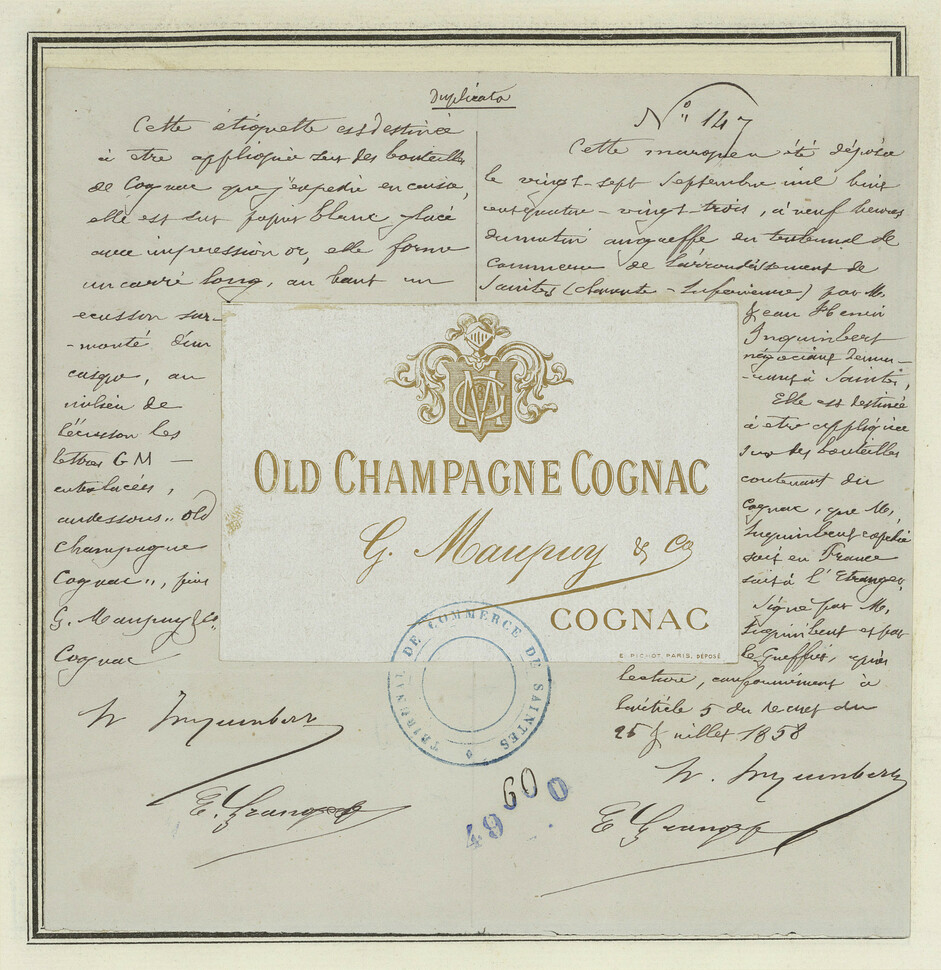 Duplicata
Cette étiquette est destinée
à être appliquée sur des bouteilles
de Cognac que j'expédie en caisse,
elle est sur papier blanc glacé
avec impression or, elle forme
un carré long, au haut un
ecusson sur-
-monté d'un
casque, au
milieu de
l'écusson les
lettres GM
entrelacées,
au dessous "Old
Champagne
Cognac", puis
G. Maupuy & Co.
Cognac
H. Inquimbert
E. Granger
N° 147
Cette marque a été déposée
le vingt-sept Septembre mil huit
cent quatre-vingt-trois, à neuf heures
du matin au greffe du tribunal de
Commerce de l'arrondissement de
Saintes (Charente-Inférieure) par M.
Jean Henri
Inquimbert
négociant demeu-
-rant à Saintes,
Elle est destinée
à être appliquée
sur des bouteilles
contenant du
Cognac, que M.
Inquimbert expédie
soit en France
soit à l'Etranger.
Signé par M.
Inquimbert et par
le Greffier, après
lecture, conformément à
l'article 5 du décret du
26 Juillet 1858
H. Inquimbert
E Granger
GM
OLD CHAMPAGNE COGNAC
G. Maupuy & Co
COGNAC
E. PICHOT PARIS, DÉPOSÉ
TRIBUNAL DE COMMERCE DE SAINTES
60
49 0